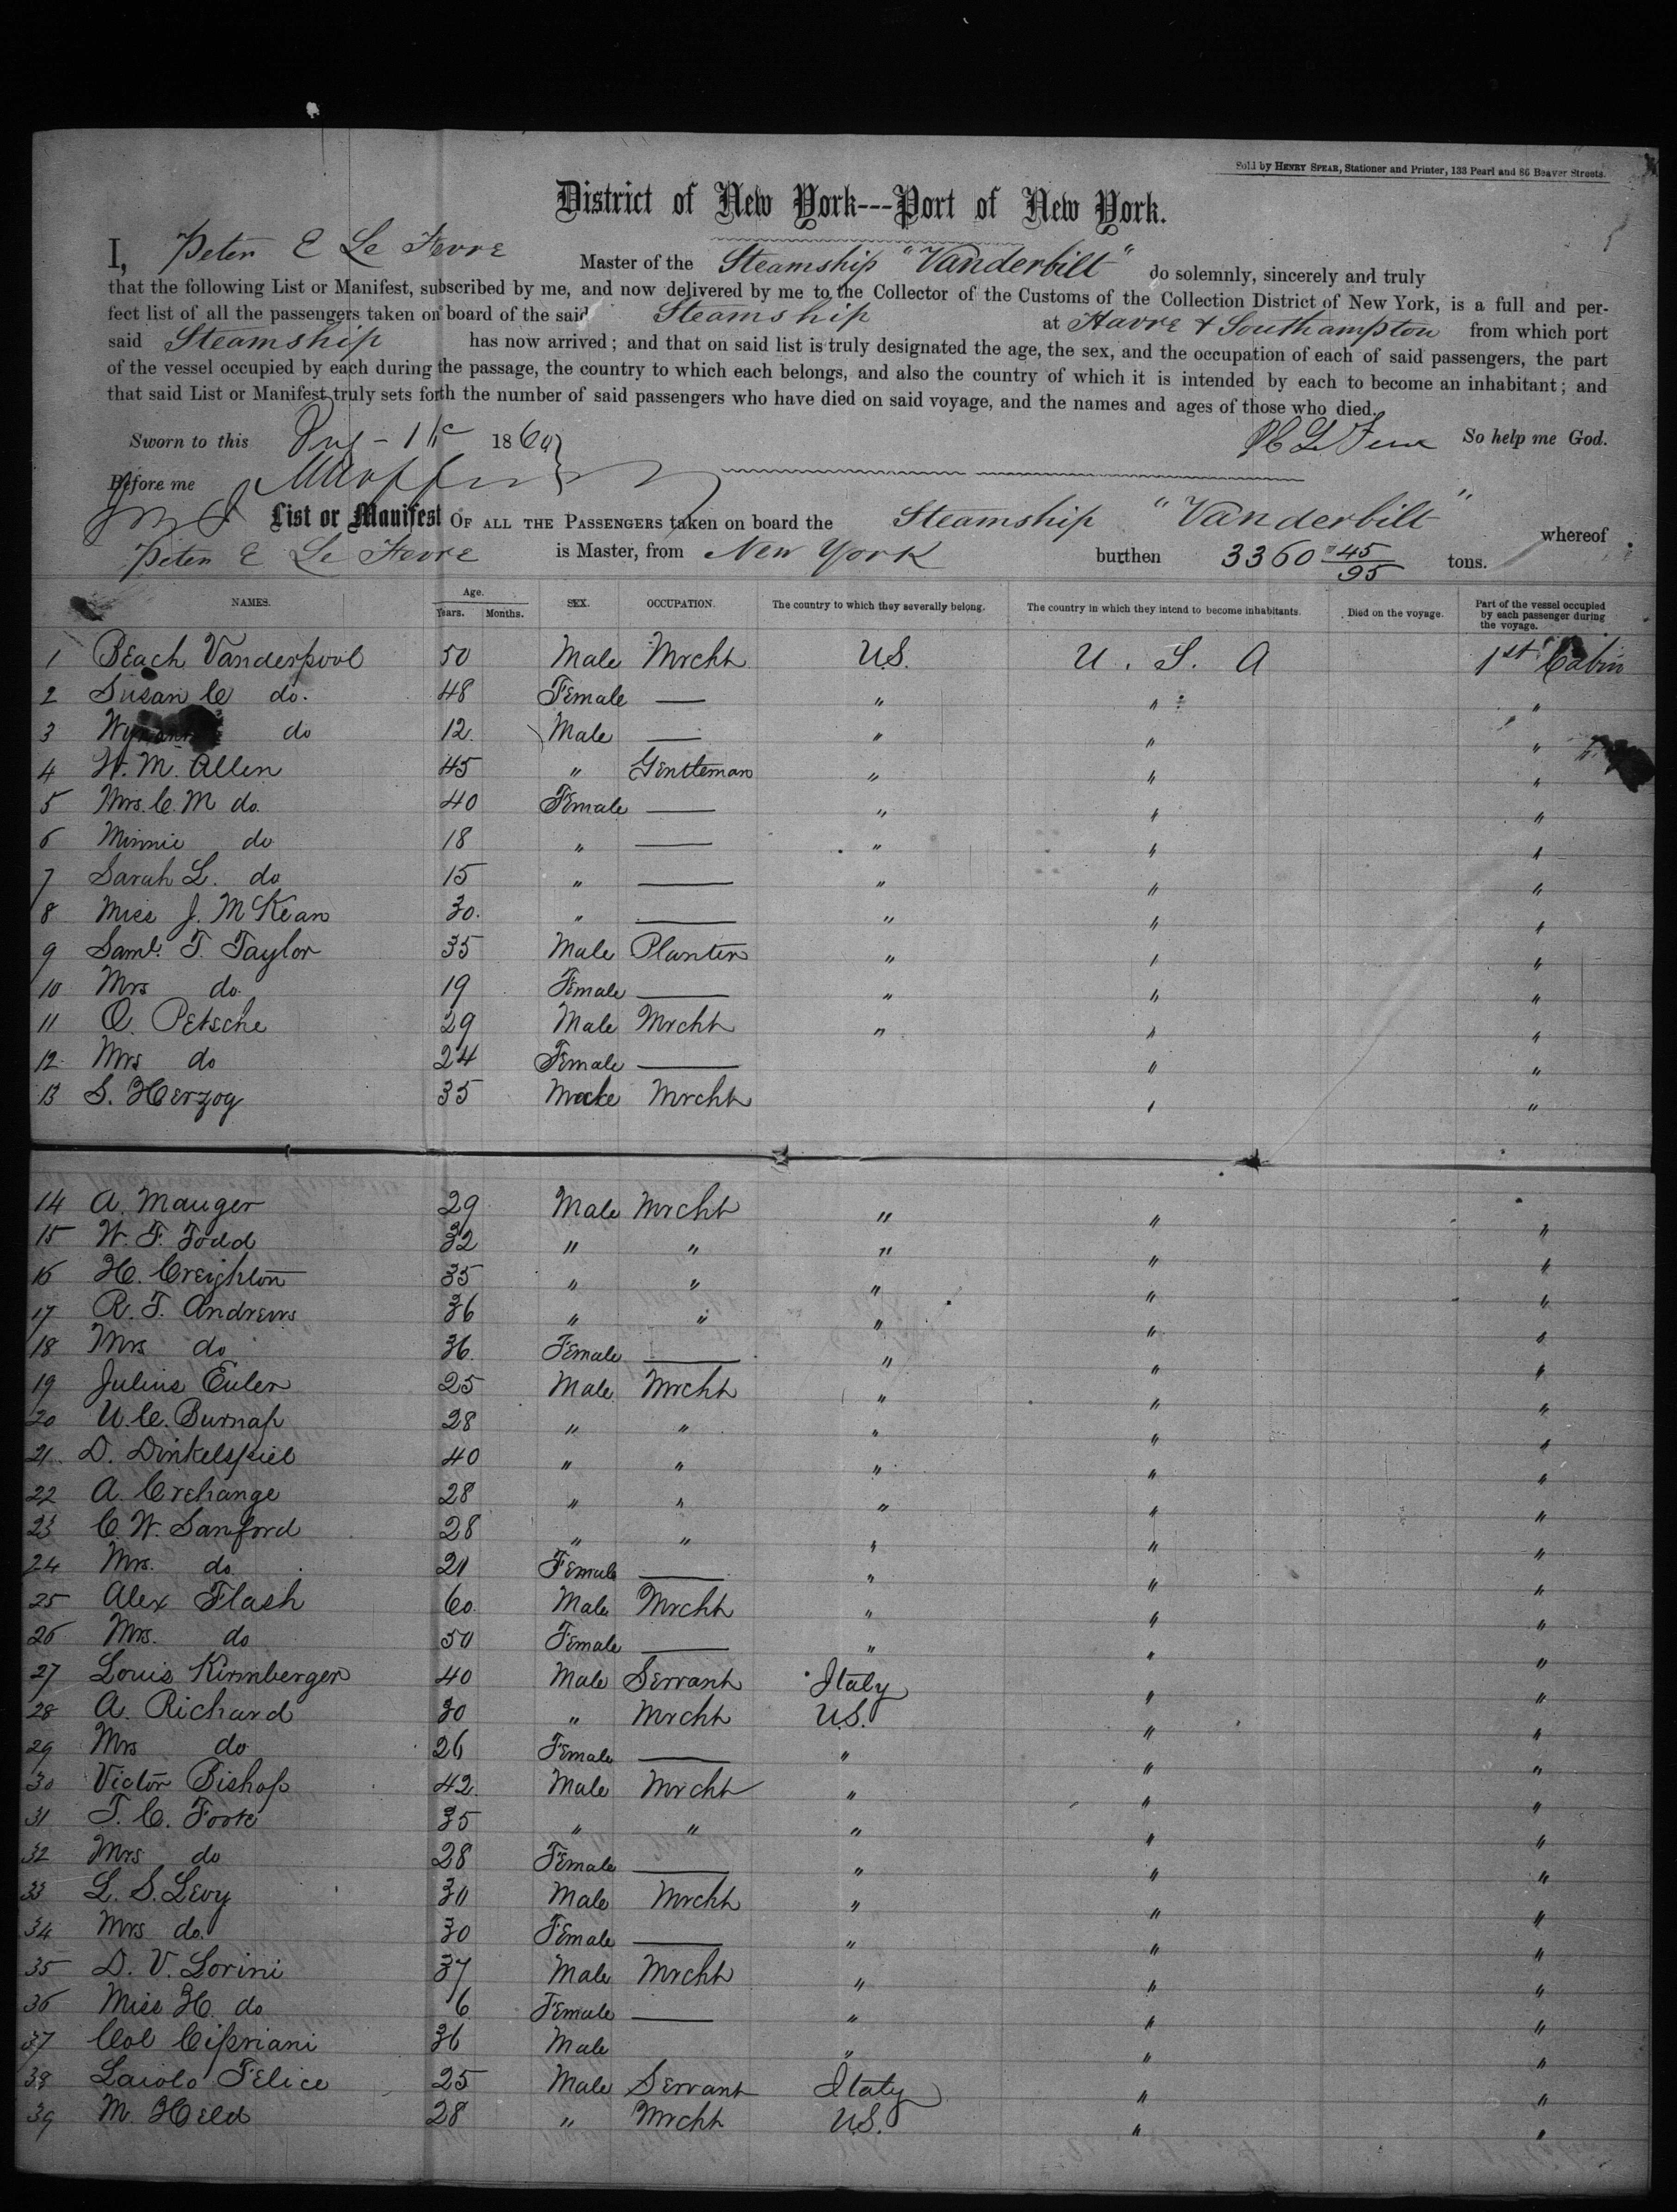 Sold by HENRY SPEAR, Stationer and Printer, 133 Pearl and 86 Beaver Streets.
District of New York---Port of New York.
I, Peter E Le Fevre Master of the Steamship "Vanderbilt" do solemnly, sincerely and truly
that the following List or Manifest, subscribed by me, and now delivered by me to the Collector of the Customs of the Collection District of New York, is a full and per-
fect list of all the passengers taken on board of the said Steamship at Havre & Southampton from which port
said Steamship has now arrived; and that on said list is truly designated the age, the sex, and the occupation of each of said passengers, the part
of the vessel occupied by each during the passage, the country to which each belongs, and also the country of which it is intended by each to become an inhabitant; and
that said List or Manifest truly sets forth the number of said passengers who have died on said voyage, and the names and ages of those who died.
Sworn to this Aug - 1 1860 So help me God.
Before me
List or Manifest OF ALL THE PASSENGERS taken on board the Steamship "Vanderbilt" whereof
Peter E Le Fevre is Master, from New York burthen 3360 45/95 tons.
NAMES. Age. Years. Months. SEX. OCCUPATION. The country to which they severally belong. The country in which they intend to become inhabitants. Died on the voyage. Part of the vessel occupied by each passenger during the voyage.
1 Beach Vanderpool 50 Male Mrcht U.S. U. S. A 1st Cabin
2 Susan C do. 48 Female — " " "
3 do 12. Male — " " "
4 W. M. Allen 45 " Gentleman " " "
5 Mrs. C. M do. 40 Female — " " "
6 Minnie do 18 " — " " "
7 Sarah L. do 15 " — " " "
8 Miss J. McKean 30. " — " " "
9 Saml. T. Taylor 35 Male Planter " " "
10 Mrs do. 19 Female — " " "
11 O. Petsche 29 Male Mrcht " " "
12 Mrs do 24 Female — " "
13 S. Herzog 35 Male Mrcht " "
14 A. Mauger 29 Male Mrcht " " "
15 W. F. Todd 32 " " " " "
16 H. Creighton 35 " " " " "
17 R. T. Andrews 36 " " " " "
18 Mrs do 36. Female — " " "
19 Julius Euler 25 Male Mrcht " " "
20 U. C. Burnap 28 " " " " "
21. D. Dinkelspiel 40 " " " " "
22 A. Crehange 28 " " " " "
23 C. W. Sanford 28 " " " " "
24 Mrs. do. 20 Female — " " "
25 Alex Flash 60. Male Mrcht " " "
26 Mrs. do 50 Female — " " "
27 Louis Kirnberger 40 Male Servant Italy " "
28 A. Richard 30 " Mrcht U.S. " "
29 Mrs do 26 Female — " " "
30 Victor Bishop 42. Male Mrcht " " "
31 T. C. Foote 35 " " " " "
32 Mrs do 28 Female — " " "
33 L. S. Levy 30 Male Mrcht " " "
34 Mrs do. 30 Female — " " "
35 D. V. Lorini 37 Male Mrcht " " "
36 Miss H. do 6 Female — " " "
37 Col Cipriani 36 Male " " "
38 Laiolo Felice 25 Male Servant Italy " "
39 M Held 28 " Mrcht U.S. " "